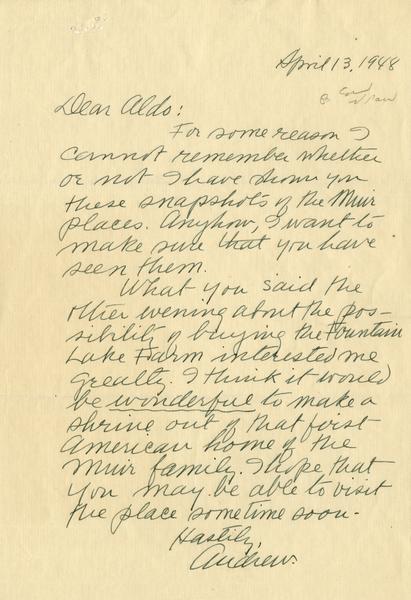 April 13, 1948
Dear Aldo:
For some reason I
cannot remember whether
or not I have shown you
these snapshots of the Muir
places. Anyhow, I want to
make sure that you have
seen them.
What you said the
other evening about the pos-
sibility of buying the Fountain
Lake Farm interested me
greatly. I think it would
be wonderful to make a
shrine out of that first
American home of the
Muir family. I hope that
you may be able to visit
the place sometime soon.
Hastily,
Andrew.